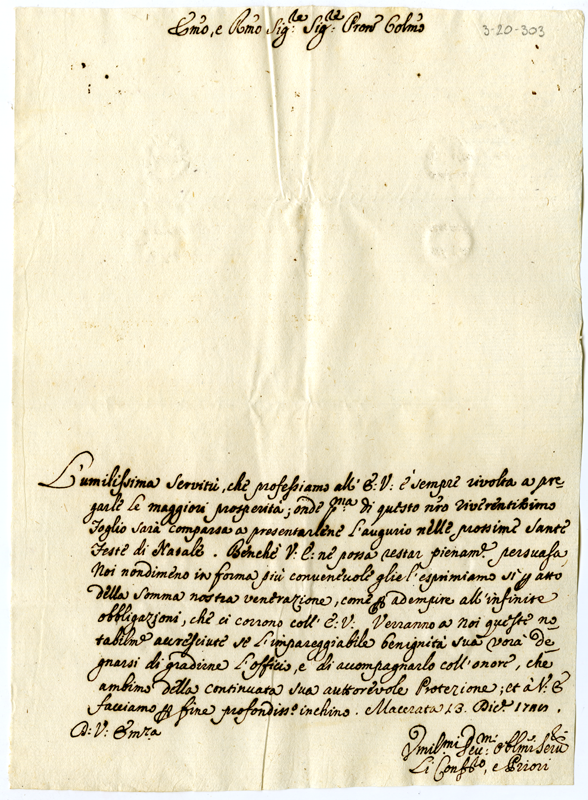 Emo, e Rmo Sig.re Sig.re Pron Colmo
3-20-303
L'umilissima servitù, che professiamo all' E: V: è sempre rivolta a pre=
garle le maggiori prosperità; onde di questo nro riverentissimo
foglio sarà comparsa a presentarlene l'augurio nelle prossime Sante
Feste di Natale. Benche V: E: ne possa restar pienam.e persuasa,
Noi nondimeno in forma più convenevole glie l'esprimiamo sì p atto
della somma nostra venerazione, come p adempire all'infinite
obbligazioni, che ci corrono coll' E: V: Verranno a noi queste no
tabilm.e accresciute se l'impareggiabile benignità sua vorà de=
gnarsi di gradirne l'officio, e di accompagnarlo coll'onore, che
ambimo della continuata sua auttorevole Protezione; et à V: E
facciamo p fine profondiss.o inchino. Macerata 13. Dic.e
D: V: Emza
Umilmi Devmi: Obblmi Seru
Li Conf, e Priori